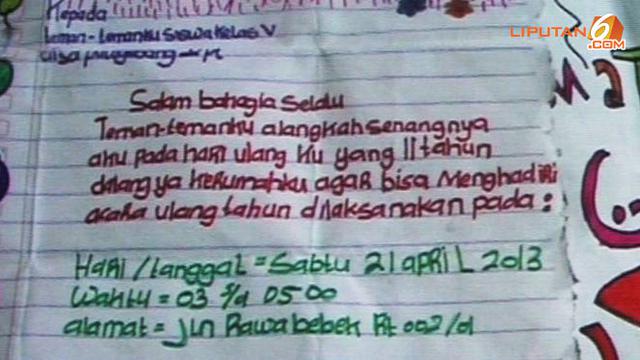 LIPUTAN 6 .COM
Kepada
teman-temanku Siswa Kelas V
Salam bahagia Selalu
Teman-temanku alangkah senangnya
aku pada hari ulang ku yang 11 tahun
datang ya kerumahku agar bisa Menghadiri
acara ulang tahun dilaksanakan pada:
Hari/tanggal = Sabtu 21 april 2013
Waktu = 03 s/d 05 00
alamat = jln Rawabebek Rt 002/01